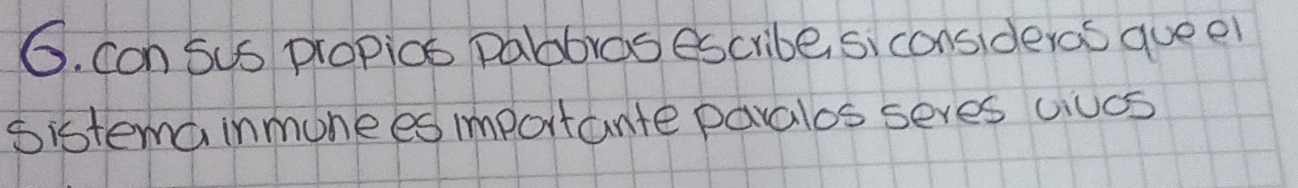 6. con sus propias palabras escribe, si consideras que el
sistema inmune es importante para los seres vivos